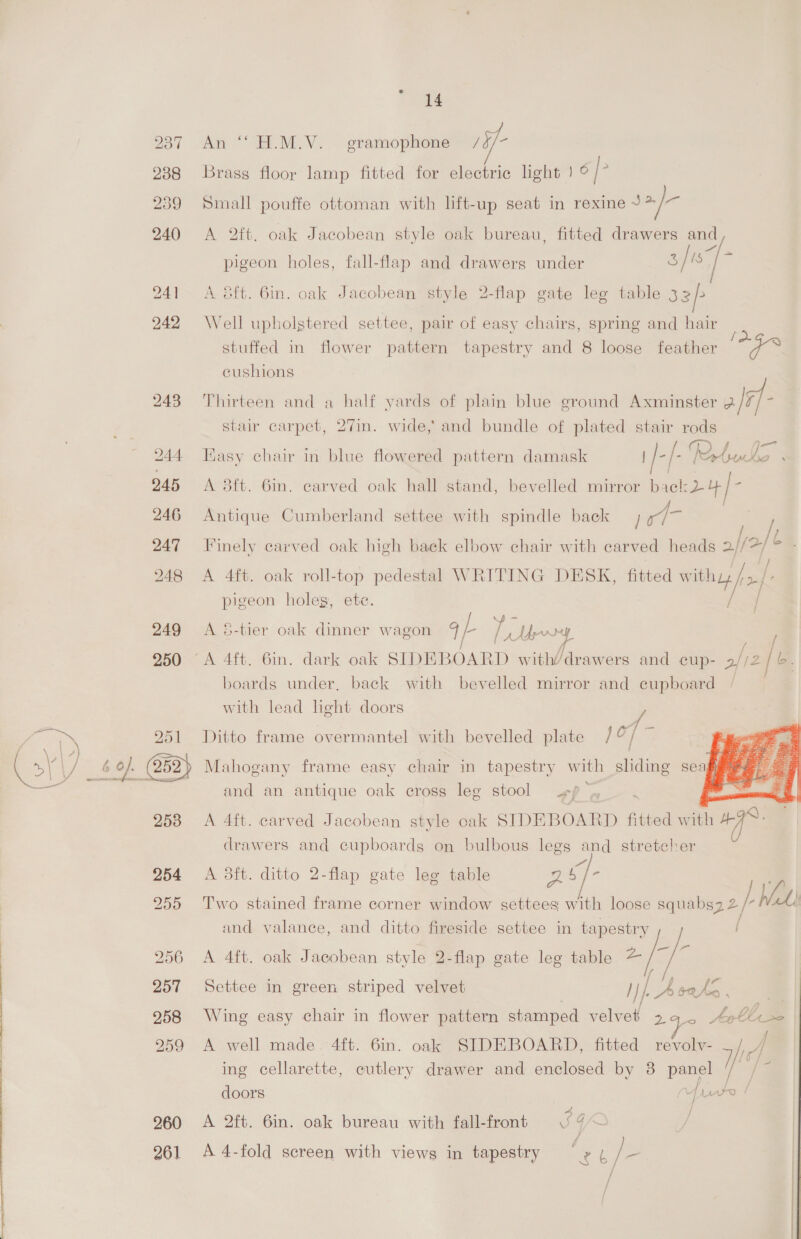 14
237 An “H.M.V. gramophone
238 Brass floor lamp fitted for electric light 16/-
239 Small pouffe ottoman with lift-up seat in rexine
240 A 2ft. oak Jacobean style oak bureau, fitted drawers and
pigeon holes, fall-flap and drawers under 3/15/-
241 A 3ft. 6in. oak Jacobean style 2-flap gate leg table 32/-
242 Well upholstered settee, pair of easy chairs, spring and hair
stuffed in flower pattern tapestry and 8 loose feather
cushions
243 Thirteen and a half yards of plain blue ground Axminster
stair carpet, 27in. wide, and bundle of plated stair rods
244 Easy chair in blue flowered pattern damask 1/-/-
245 A 3ft. 6in. carved oak hall stand, bevelled mirror back 24/-
246 Antique Cumberland settee with spindle back
247 Finely carved oak high back elbow chair with carved heads
248 A 4ft. oak roll-top pedestal WRITING DESK, fitted with
pigeon holes, etc.
249 A 3-tier oak dinner wagon 9/-
250 A 4ft. 6in. dark oak SIDEBOARD with drawers and cup-
boards under, back with bevelled mirror and cupboard
with lead light doors
251 Ditto frame overmantel with bevelled plate
6 of. 252 Mahogany frame easy chair in tapestry with sliding sea
and an antique oak cross leg stool
253 A 4ft. carved Jacobean style oak SIDEBOARD fitted with
drawers and cupboards on bulbous legs and stretcher
254 A 3ft. ditto 2-flap gate leg table
255 Two stained frame corner window settees with loose squabs
and valance, and ditto fireside settee in tapestry
256 A 4ft. oak Jacobean style 2-flap gate leg table
257 Settee in green striped velvet
258 Wing easy chair in flower pattern stamped velvet
259 A well made 4ft. 6in. oak SIDEBOARD, fitted revolv-
ing cellarette, cutlery drawer and enclosed by 3 panel
doors
260 A 2ft. 6in. oak bureau with fall-front
261 A 4-fold screen with views in tapestry